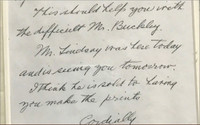 This should help you with
the difficult Mr. Buckley.
Mr. Lindsay was here today
and is seeing you tomorrow.
I think he is sold to having
you make the prints
Cordially